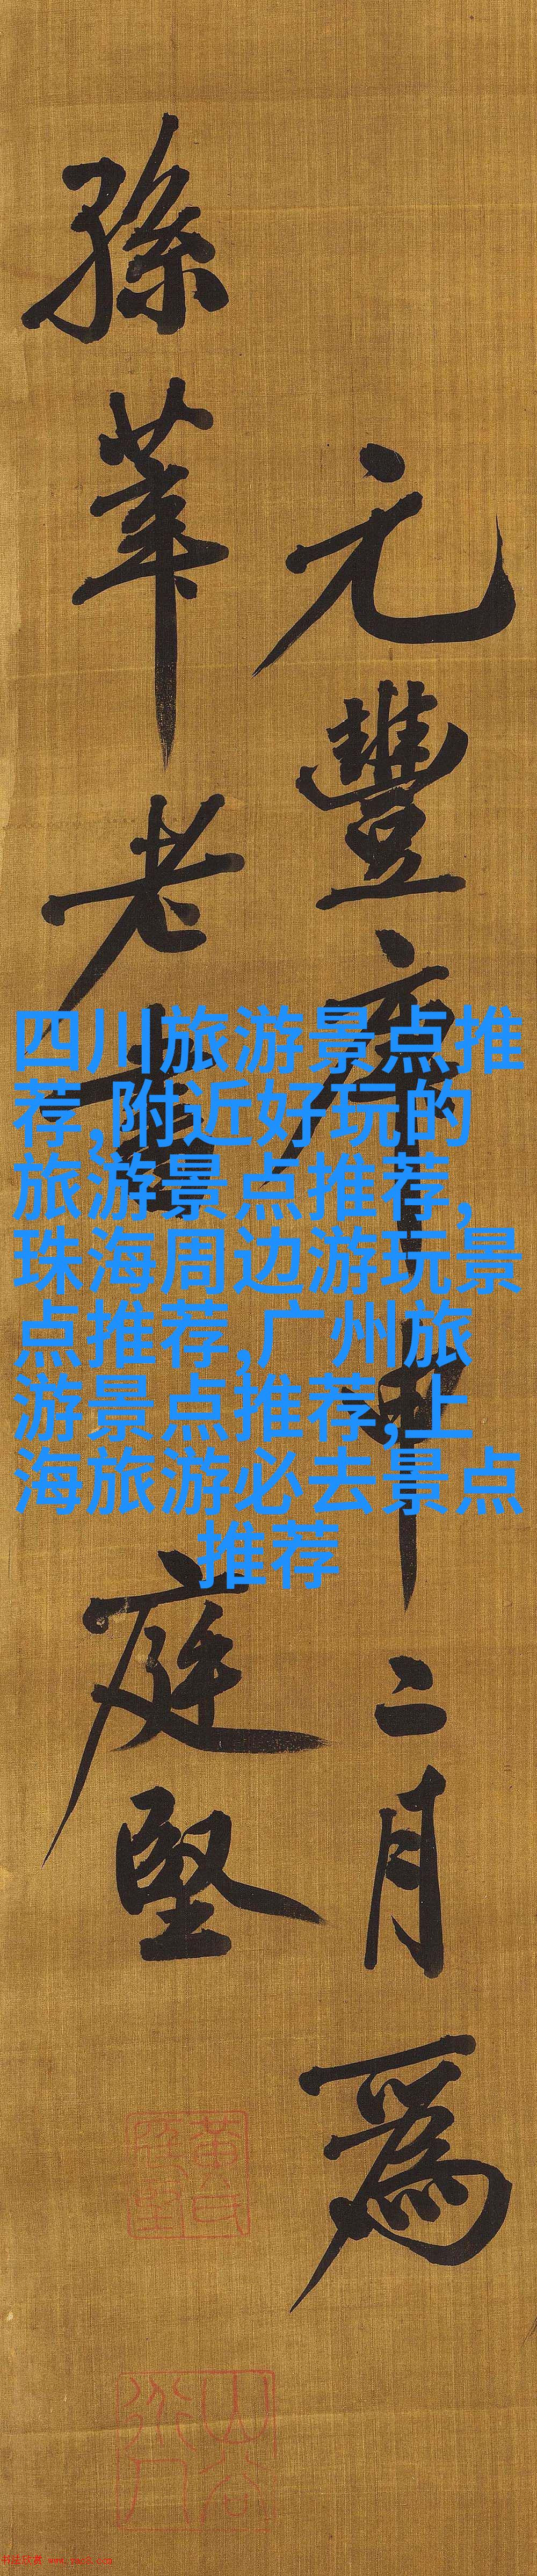 元豐庚申二月爲
孫莘老書
庭堅
四川旅游景点推
荐,附近好玩的
旅游景点推荐,
珠海周边游玩景
点推荐,广州旅
游景点推荐,上
海旅游必去景点
推荐
黄氏
庭堅
山谷